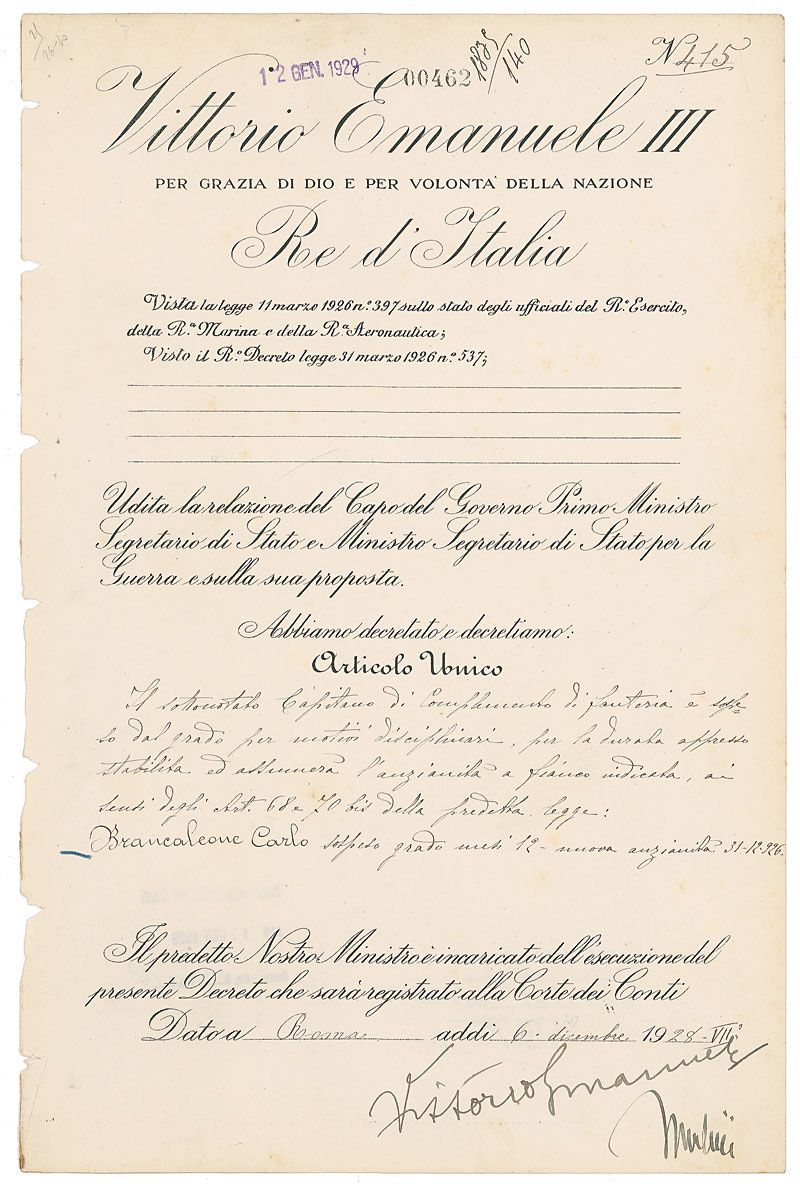 12 GEN. 1929
00462
1835/140
N 415
Vittorio Emanuele III
PER GRAZIA DI DIO E PER VOLONTÀ DELLA NAZIONE
Re d'Italia
Vista la legge 11 marzo 1926 n.º 397 sullo stato degli ufficiali del R.º Esercito,
della R.ª Marina e della R.ª Aeronautica;
Visto il R.º Decreto legge 31 marzo 1926 n.º 537;
Udita la relazione del Capo del Governo Primo Ministro
Segretario di Stato e Ministro Segretario di Stato per la
Guerra e sulla sua proposta.
Abbiamo decretato e decretiamo:
Articolo Unico
Il sottonotato Capitano di Complemento di fanteria è sospe-
so dal grado per motivi disciplinari, per la durata appresso
stabilita ed assumerà l'anzianità a fianco indicata, ai
sensi degli Art. 68 e 70 bis della predetta legge:
Brancaleone Carlo sospeso grado mesi 12 - nuova anzianità 31-12-926.
Il predetto Nostro Ministro è incaricato dell'esecuzione del
presente Decreto che sarà registrato alla Corte dei Conti
Dato a Roma addì 6. dicembre 1928-VIIº
Vittorio Emanuele
Mussolini